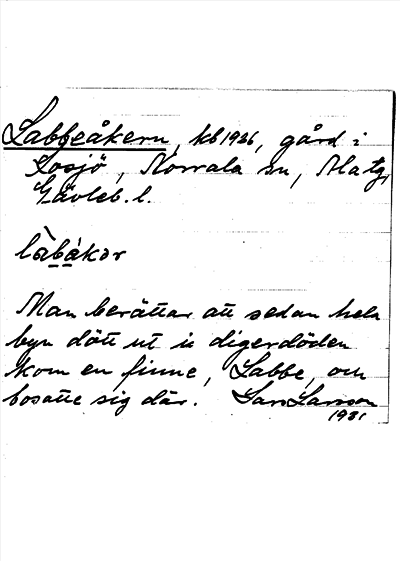 Labbeåkern, kb 1926, gård i
Losjö, Norrala sn,
Gävleb. l.
làbákər
Man berättar att sedan hela
byn dött ut i digerdöden
kom en finne, Labbe, och
bosatte sig där. Lars Larsson
1931